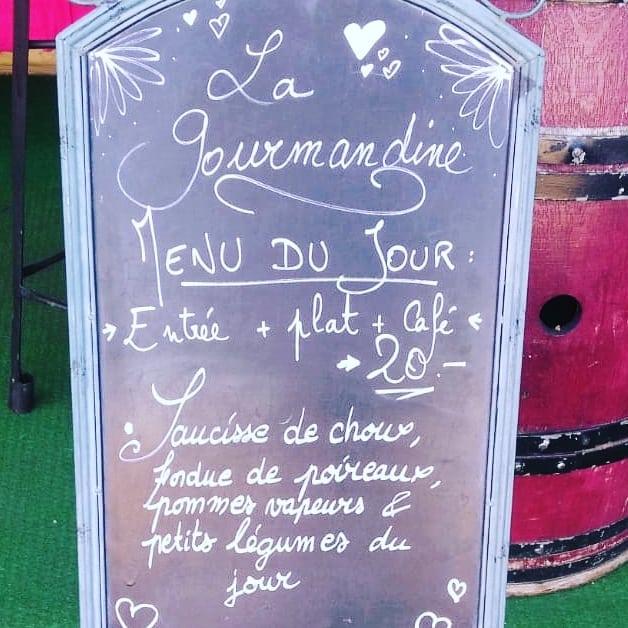 La
Gourmandine
MENU DU JOUR :
→ Entrée + plat + Café ←
→ 20.-
• Saucisse de choux,
fondue de poireaux,
pommes vapeurs &
petits légumes du
jour